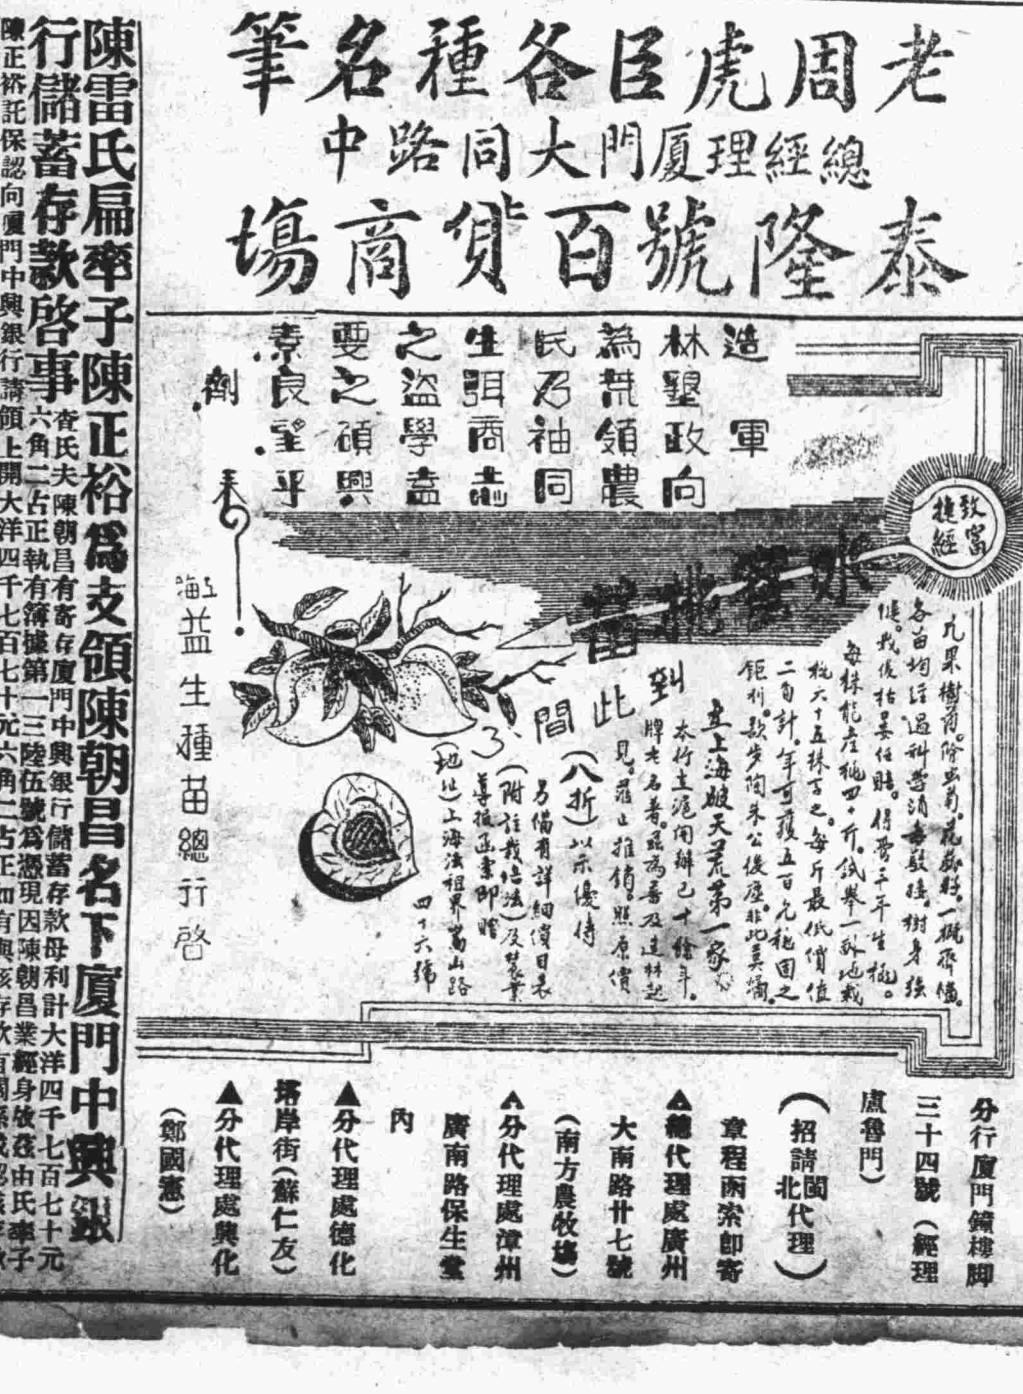 老周虎臣各種名筆
總經理廈門大同路中
泰隆號百貨商塲
造林為民生之要素
墾荒乃弭盜之良劑
軍政領袖商學碩望
向農同志盍興乎來
致富捷經
水蜜桃苗
到此間了
凡果樹苗。除虫菊。花
各苗均經過科學消毒
樹身強健。我後枯萎任賠。得費三年生桃。
每株能產桃四十斤。試舉一畝地栽
桃六十五株言之。每斤最低價值
二角計年可獲五百元
鉅利。
上海破天荒第一家
本行在滬開辦已十餘年。
牌老名著。
照原價
(八折)以示優待
另備有詳細價目表
(附註栽培法)及營業
導報函索即贈
地址)上海法租界嵩山路
四十六號
上海益生種苗總行啓
分行廈門鐘樓脚
三十四號(經理
盧魯門)
(招請閩北代理)
章程函索即寄
▲總代理處廣州
大南路廿七號
(南方農牧塲)
▲分代理處漳州
廣南路保生堂
內
▲分代理處德化
塔岸街(蘇仁友)
▲分代理處興化
(鄭國憲)
陳雷氏扁率子陳正裕爲支領陳朝昌名下廈門中興銀
行儲蓄存款啓事
查氏夫陳朝昌有寄存廈門中興銀行儲蓄存款母利計大洋四千七百七十元
六角二占正執有簿據第一三陸伍號爲憑現因陳朝昌業經身故茲由氏率子
陳正裕託保認向廈門中興銀行請領上開大洋四千七百七十元六角二占正如有與該存款有關係